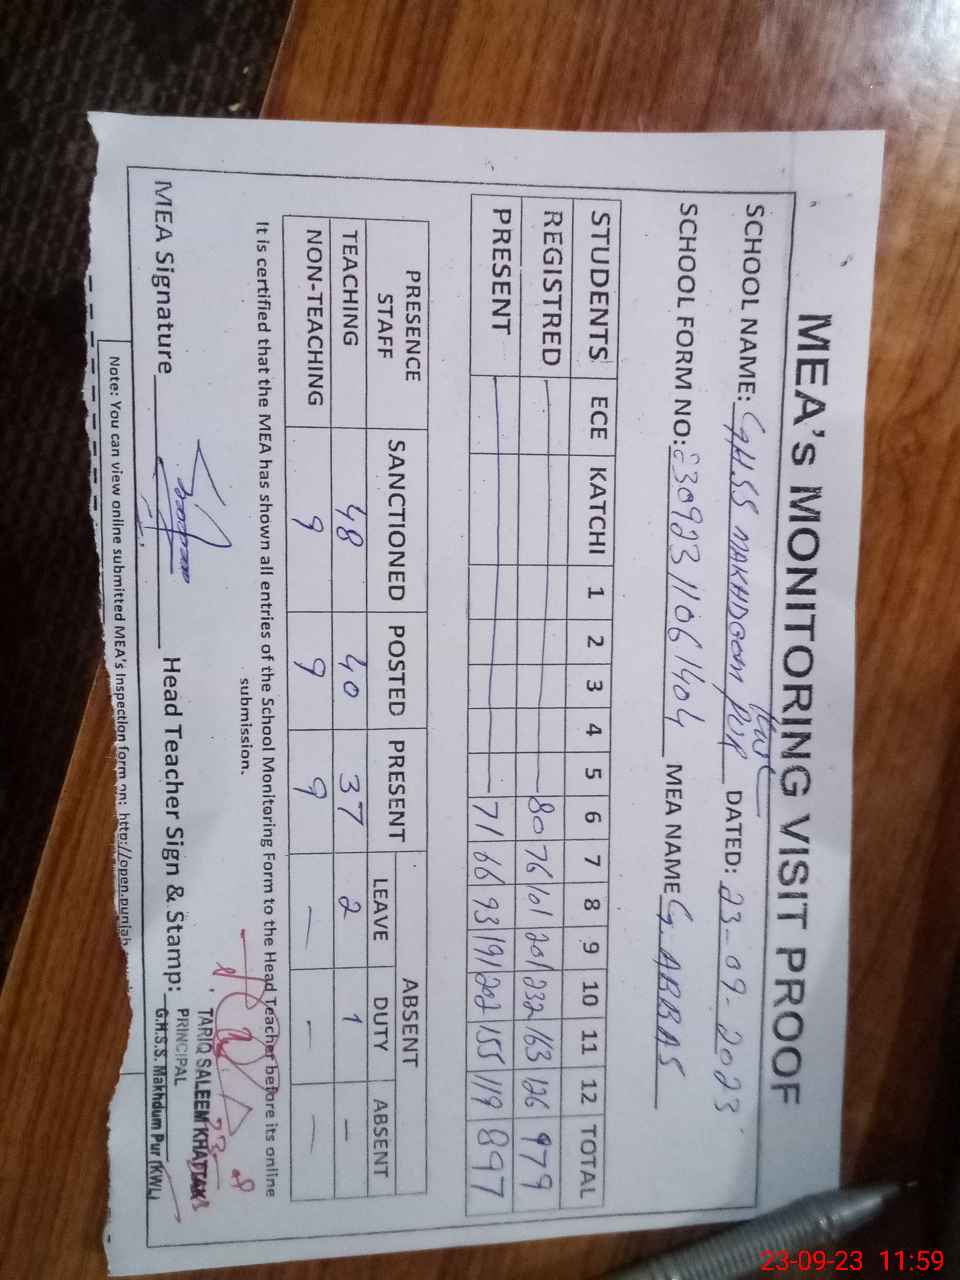 MEA's MONITORING VISIT PROOF
SCHOOL NAME: GHSS MAKHDOOM PUR DATED: 23-09-2023
SCHOOL FORM NO: 230923 1106 1404 MEA NAME G. ABBAS
STUDENTS ECE KATCHI 1 2 3 4 5 6 7 8 9 10 11 12 TOTAL
REGISTRED 80 76 101 201 232 163 126 979
PRESENT 71 66 93 191 202 155 119 897
PRESENCE STAFF SANCTIONED POSTED PRESENT ABSENT
LEAVE DUTY ABSENT
TEACHING 48 40 37 2 1 -
NON-TEACHING 9 9 9 - - -
It is certified that the MEA has shown all entries of the School Monitoring Form to the Head Teacher before its online
submission.
TARIQ SALEEM KHATTAK
PRINCIPAL
MEA Signature Head Teacher Sign & Stamp: G.H.S.S. Makhdum Pur (KWL)
Note: You can view online submitted MEA's Inspection form on: http://open.punjab
23-09-23 11:59